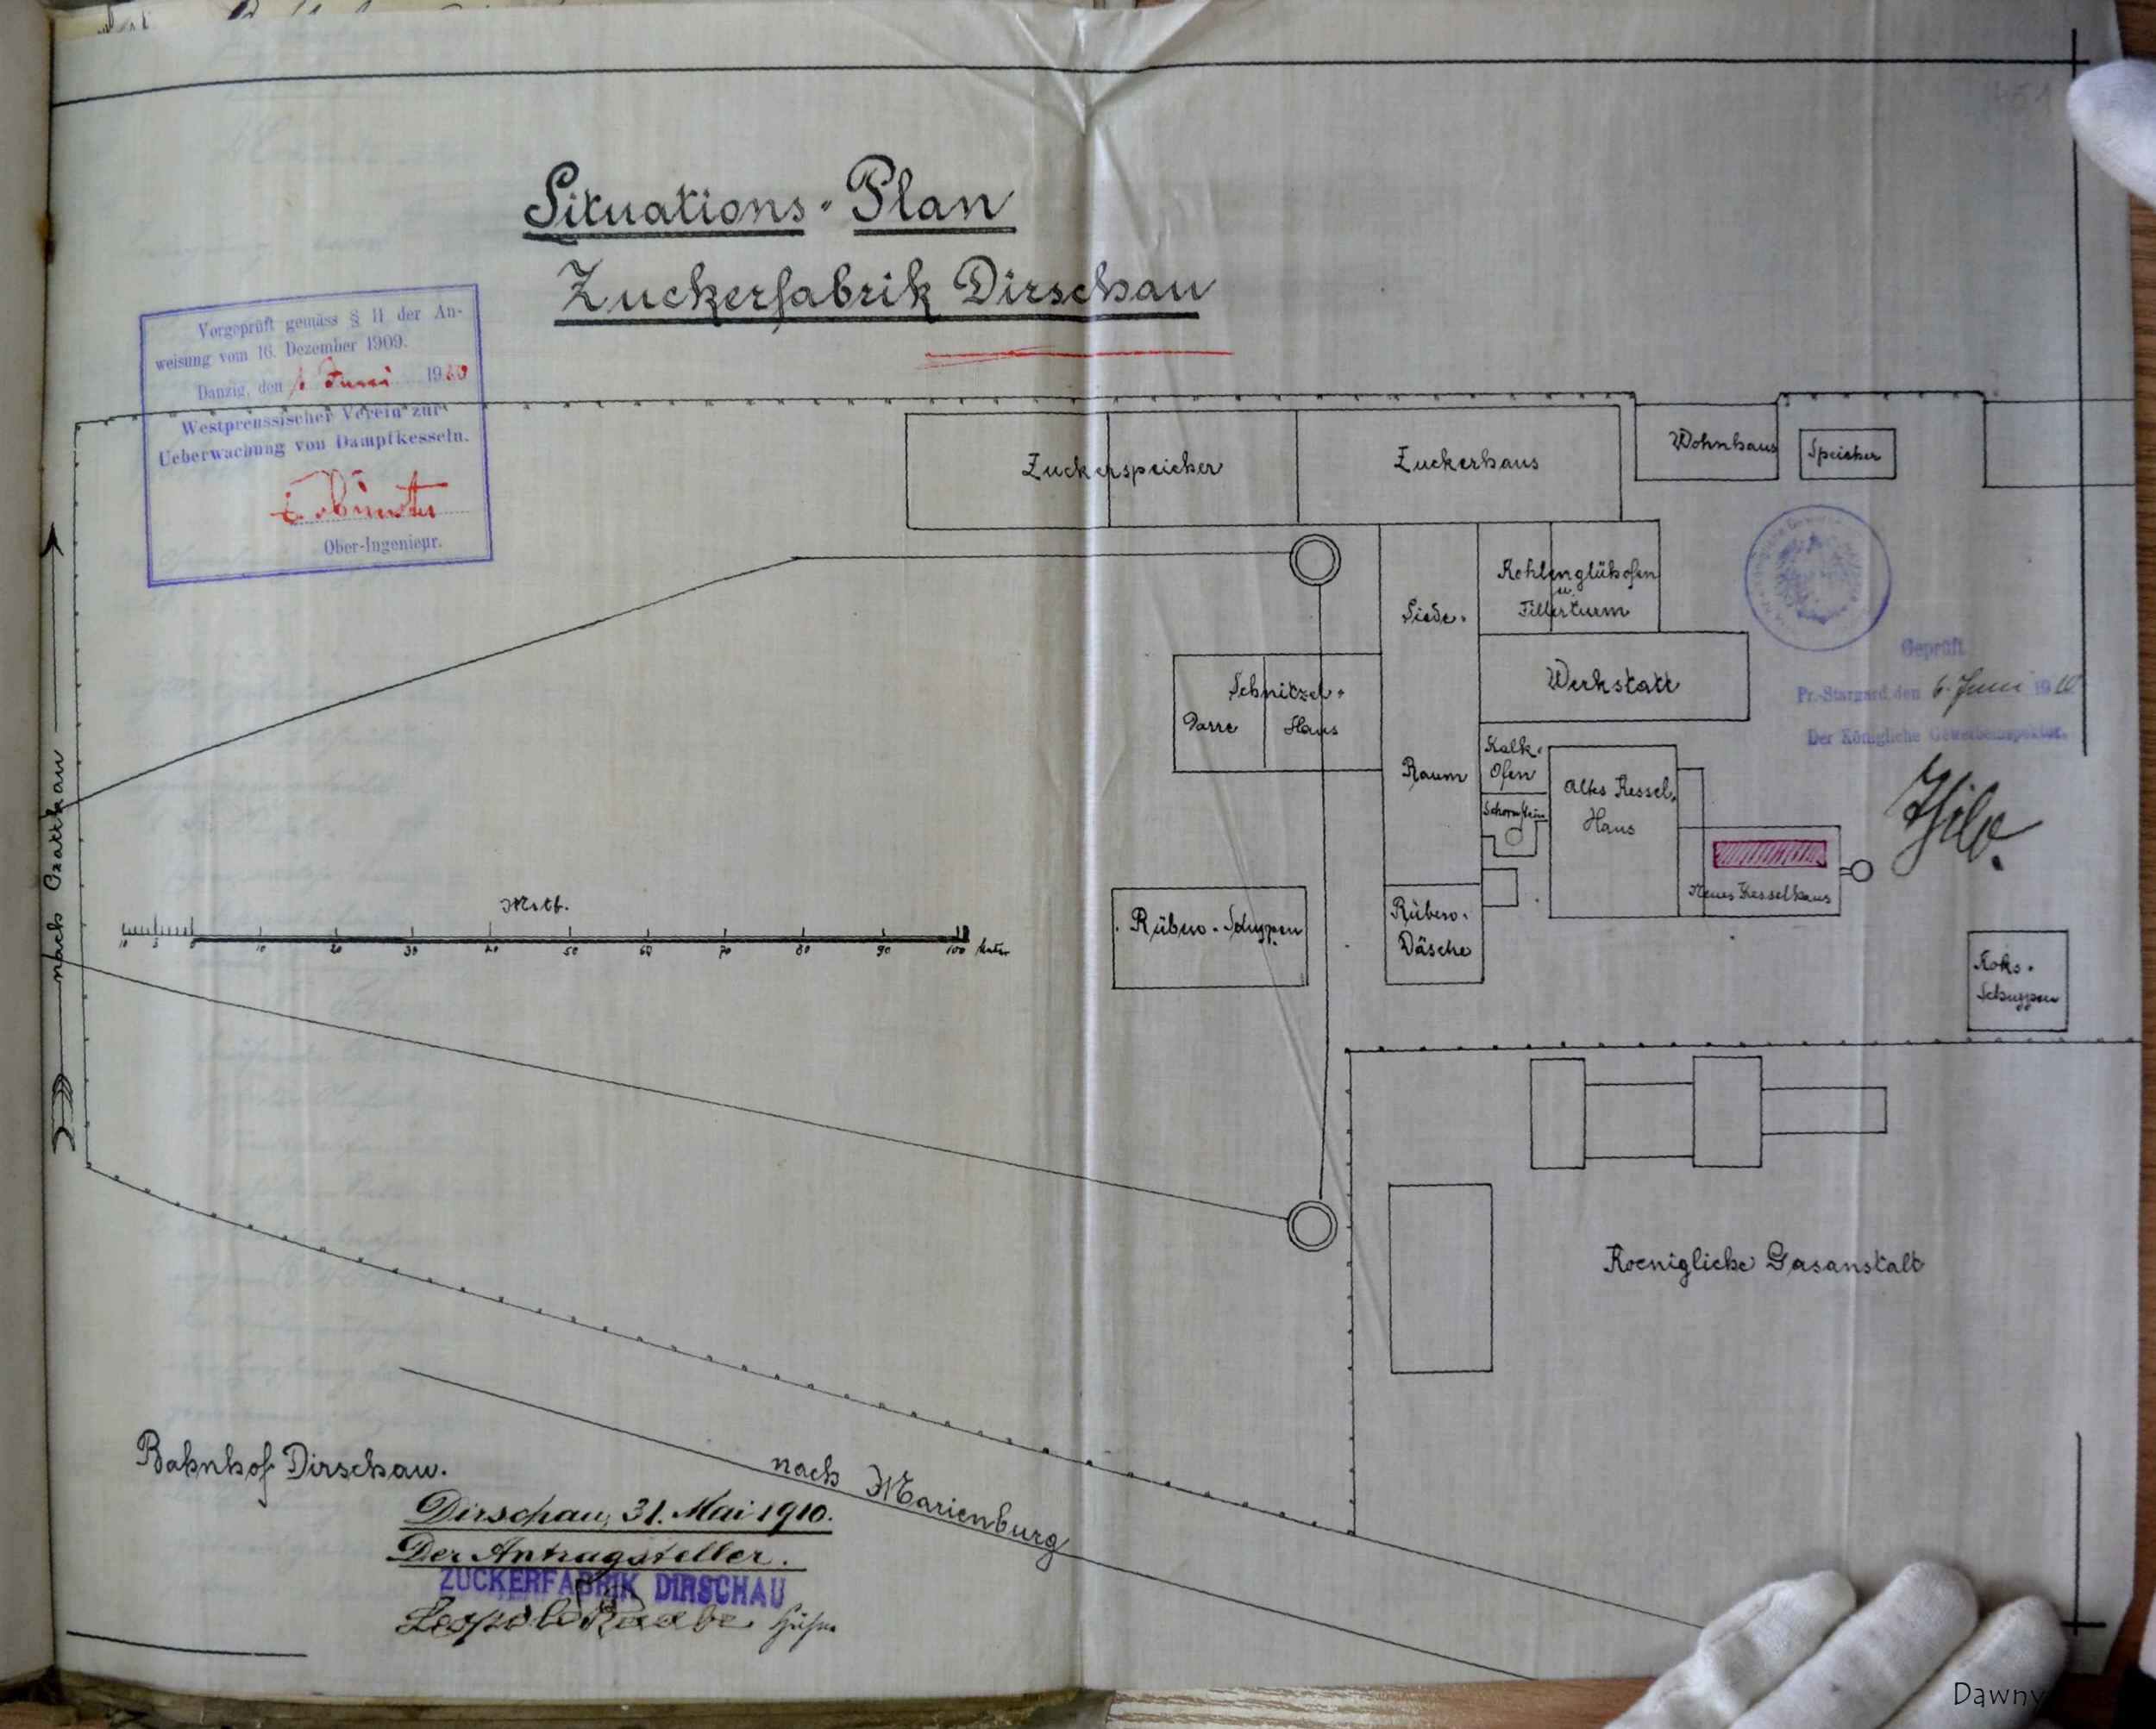 Situations-Plan
Zuckerfabrik Dirschau
Vorgeprüft gemäss § 11 der An-
weisung vom 16. Dezember 1909.
Danzig, den Juni 1910
Westpreussischer Verein zur
Ueberwachung von Dampfkesseln.
Ober-Ingenieur.
Zuckerspeicher
Zuckerhaus
Wohnhaus
Speicher
Kohlenglühofen
u.
Filterturm
Siede-
Raum
Schnitzel-
Darre
Haus
Werkstatt
Geprüft
Pr.-Stargard den 6. Juni 1910
Der Königliche Gewerbeinspektor.
Kalk-
Ofen
Schornstein
Altes Kessel-
Haus
Neues Kesselhaus
nach Czattkau
10 5 0 10 20 30 40 50 60 70 80 90 100 Meter
Rüben-Schuppen
Rüben-
Wäsche
Koks-
Schuppen
Koenigliche Gasanstalt
Bahnhof Dirschau.
nach Marienburg
Dirschau, 31. Mai 1910.
Der Antragsteller.
ZUCKERFABRIK DIRSCHAU
Leopold Raabe
Dawny